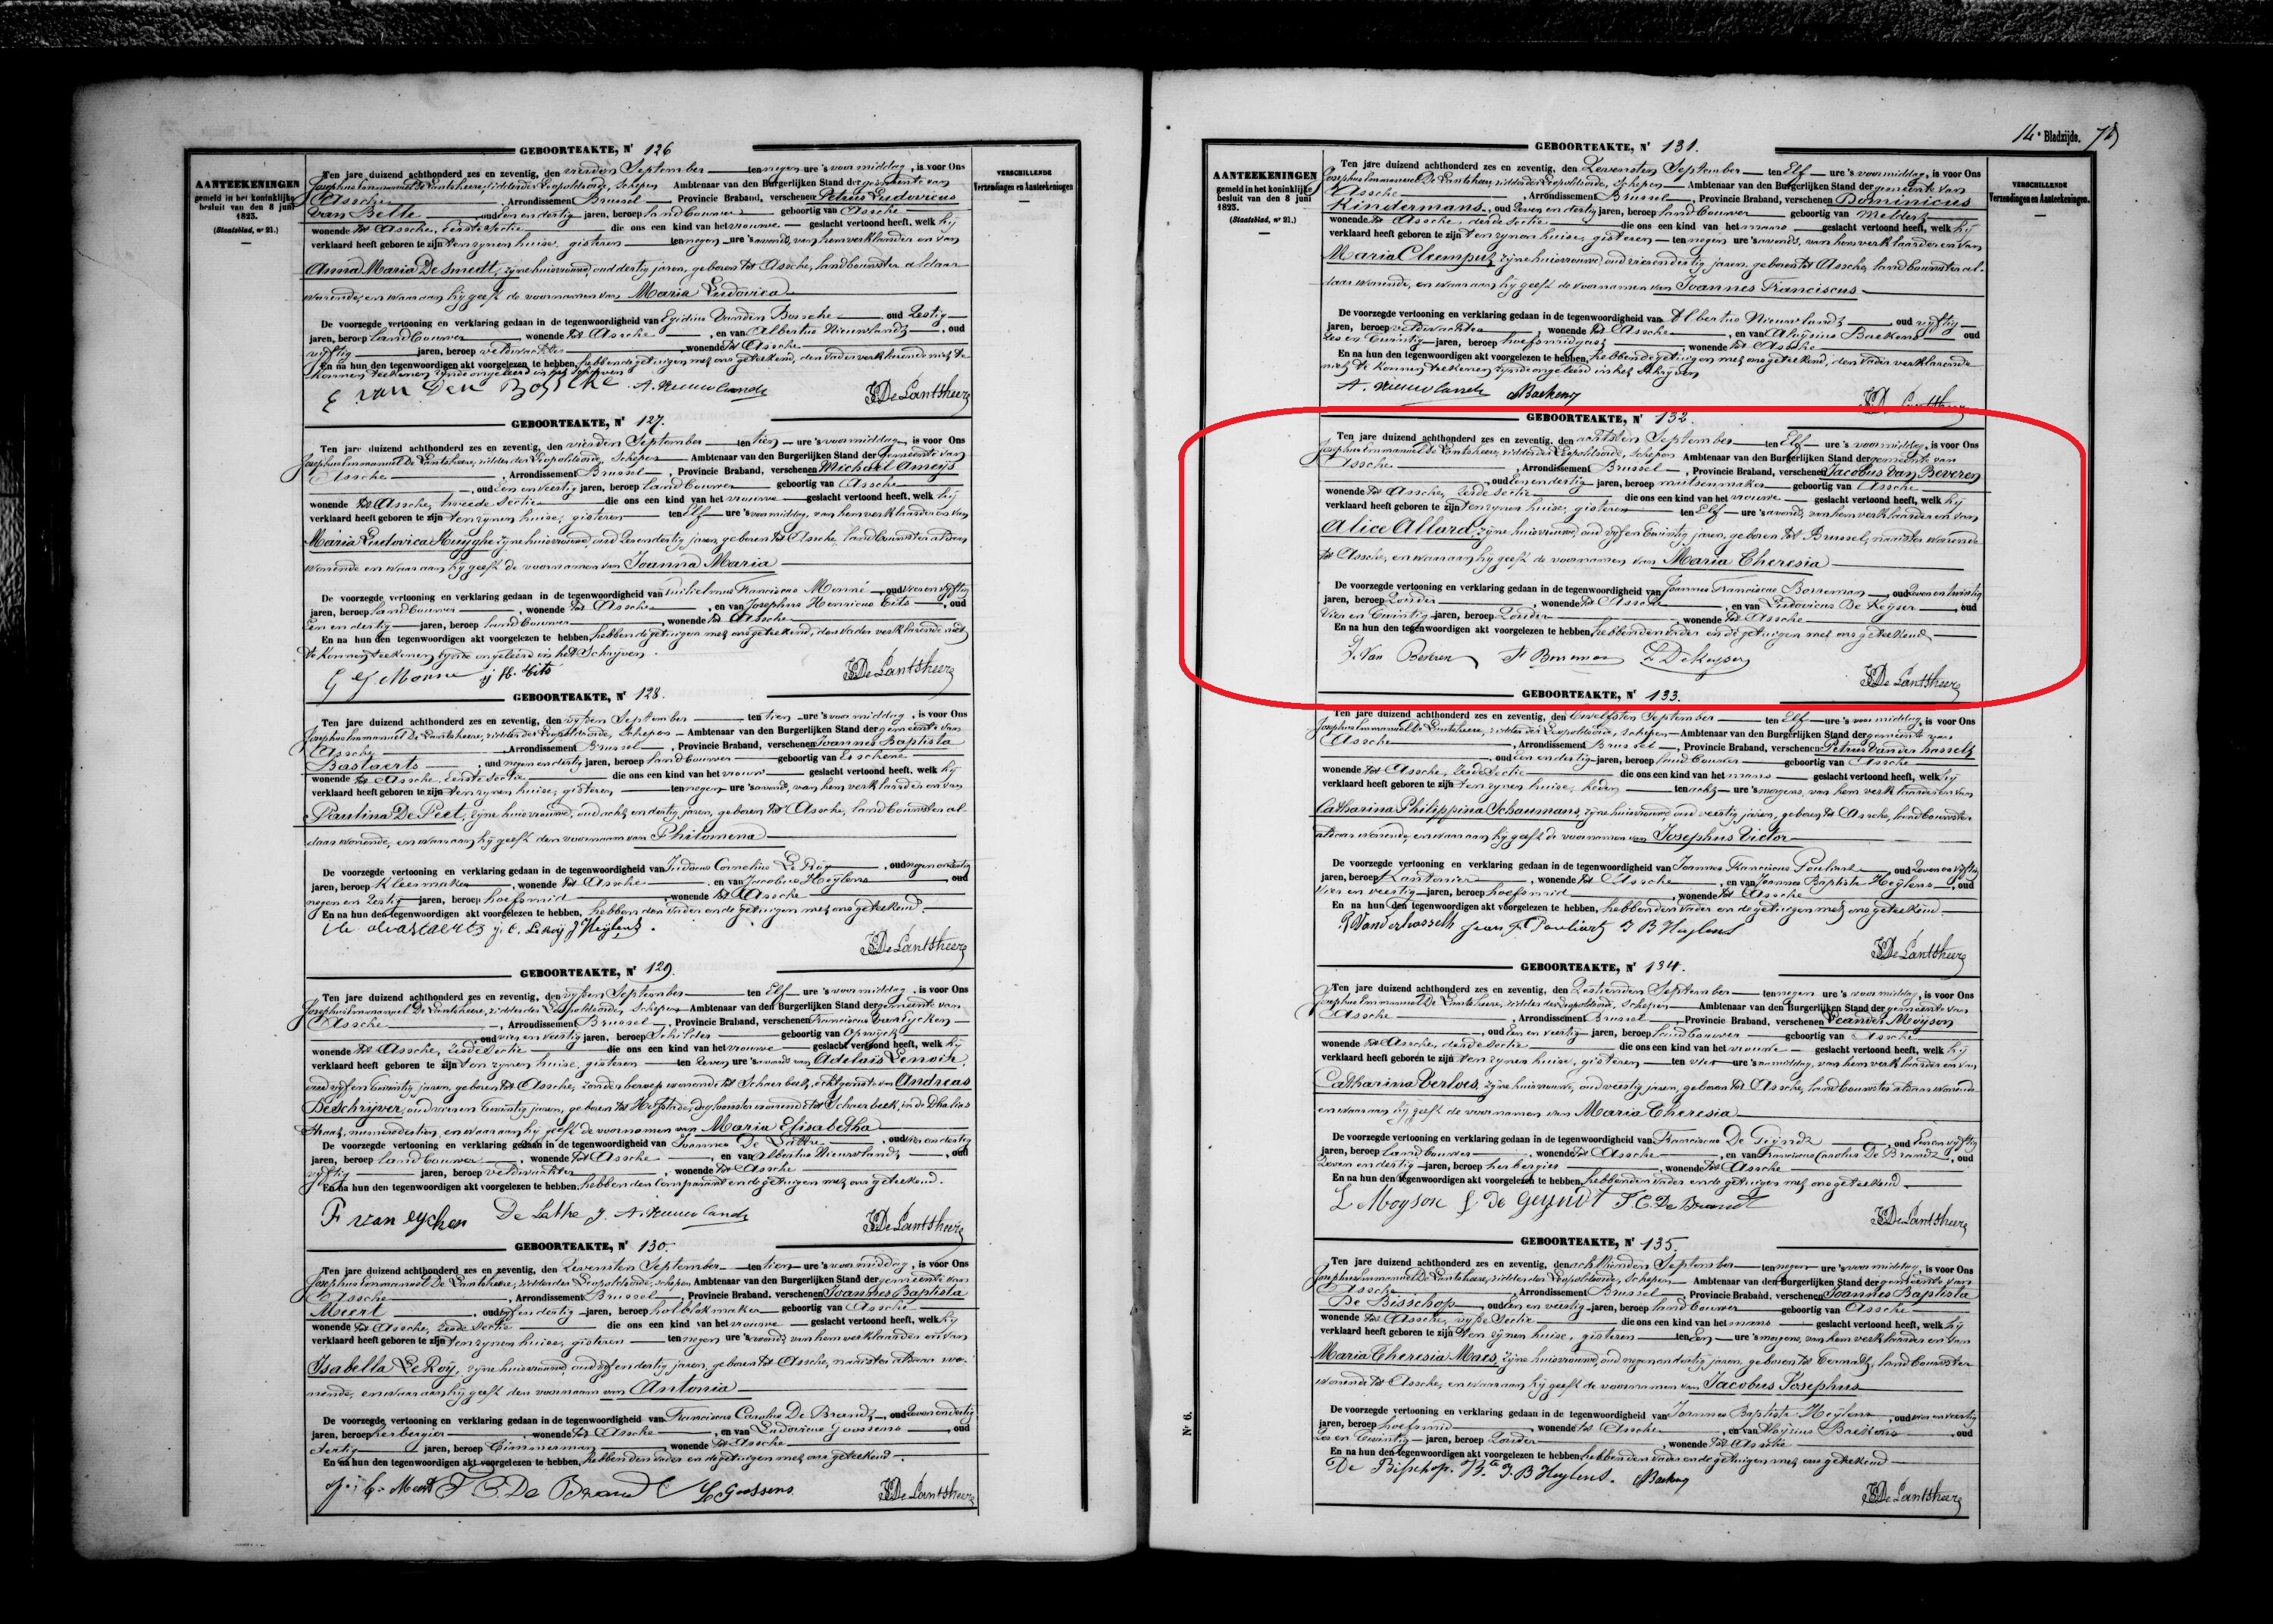 GEBOORTEAKTE, Nr 126
AANTEEKENINGEN
gemeld in het koninklijke
besluit van den 8 juni
1823.
(Staatsblad, nr 21.)
VERSCHILLENDE
Verzendingen en Aanteekeningen
Ten jare duizend achthonderd zes en zeventig, den vierden September ten negen ure 's voormiddag, is voor Ons
Josephus Emmanuel De Lantsheere, ridder der Leopoldsorde, Schepen Ambtenaar van den Burgerlijken Stand der gemeente van
Assche, Arrondissement Brussel, Provincie Braband, verschenen Petrus Ludovicus
Van Belle, oud een en dertig jaren, beroep landbouwer geboortig van Assche
wonende tot Assche, eerste Sectie die ons een kind van het vrouwe geslacht vertoond heeft, welk hij
verklaard heeft geboren te zijn ten zynen huise, gisteren ten negen ure 's avonds, van hem verklaarder en van
Anna Maria De Smedt, zijne huisvrouwe, oud dertig jaren, geboren tot Assche, landbouwster aldaar
wonende, en waaraan hij geeft de voornamen van Maria Ludovica
De voorzegde vertooning en verklaring gedaan in de tegenwoordigheid van Egidius Vanden Bossche oud Zestig
jaren, beroep landbouwer, wonende tot Assche, en van Albertus Nieuwlandt, oud
vyftig jaren, beroep veldwachter wonende tot Assche
En na hun den tegenwoordigen akt voorgelezen te hebben, hebben de getuigen met ons geteekend, den vader verklarende niet te
konnen teekenen zynde ongeleerd in het schryven
E van Den Bossche A. Nieuwlandt JE De Lantsheere
GEBOORTEAKTE, Nr 127.
Ten jare duizend achthonderd zes en zeventig, den vierden September ten tien ure 's voormiddag, is voor Ons
Josephus Emmanuel De Lantsheere, ridder der Leopoldsorde, Schepen Ambtenaar van den Burgerlijken Stand der gemeente van
Assche, Arrondissement Brussel, Provincie Braband, verschenen Michael Ameijs
, oud Een en veertig jaren, beroep landbouwer geboortig van Assche
wonende tot Assche, tweede Sectie die ons een kind van het vrouwe geslacht vertoond heeft, welk hij
verklaard heeft geboren te zijn ten zynen huise, gisteren ten Elf ure 's voormiddag, van hem verklaarder en van
Maria Ludovica Huyghe zijne huisvrouwe, oud Zes en dertig jaren, geboren tot Assche, landbouwster aldaar
wonende en waaraan hij geeft de voornamen van Joanna Maria
De voorzegde vertooning en verklaring gedaan in de tegenwoordigheid van Guilielmus Franciscus Monné, oud vier en vyftig
jaren, beroep landbouwer, wonende tot Assche, en van Josephus Henricus Tits, oud
Een en dertig jaren, beroep landbouwer, wonende tot Assche
En na hun den tegenwoordigen akt voorgelezen te hebben, hebben de getuigen met ons geteekend, den vader verklarende niet
te konnen teekenen zynde ongeleerd in het Schrijven.
G F Monne J H. Tits JE De Lantsheere
GEBOORTEAKTE, Nr 128.
Ten jare duizend achthonderd zes en zeventig, den vyfden September ten tien ure 's voormiddag, is voor Ons
Josephus Emmanuel De Lantsheere, ridder der Leopoldsorde, Schepen Ambtenaar van den Burgerlijken Stand der gemeente van
Assche, Arrondissement Brussel, Provincie Braband, verschenen Joannes Baptista
Bastaerts, oud negen en dertig jaren, beroep landbouwer geboortig van Esschene
wonende tot Assche, Eerste Sectie, die ons een kind van het vrouw geslacht vertoond heeft, welk hij
verklaard heeft geboren te zijn ten zynen huise, gisteren, ten negen ure 's avonds, van hem verklaarder en van
Paulina De Pelt, zijne huisvrouwe, oud acht en dertig jaren, geboren tot Assche, landbouwster al-
daar wonende, en waaraan hij geeft den voornaam van Philomena
De voorzegde vertooning en verklaring gedaan in de tegenwoordigheid van Judocus Cornelius Le Roy, oud negen en zestig
jaren, beroep Kleermaker, wonende tot Assche, en van Jacobus Heylens, oud
negen en Zestig jaren, beroep hoefsmid, wonende tot Assche
En na hun den tegenwoordigen akt voorgelezen te hebben, hebben den Vader en de getuigen met ons geteekend.
J. C. Le Roij J Heylens. JE De Lantsheere
GEBOORTEAKTE, Nr 129.
Ten jare duizend achthonderd zes en zeventig, den vyfden September ten Elf ure 's voormiddag, is voor Ons
Josephus Emmanuel De Lantsheere, ridder der Leopoldsorde, Schepen Ambtenaar van den Burgerlijken Stand der gemeente van
Assche, Arrondissement Brussel, Provincie Braband, verschenen Franciscus Van Eycken
, oud vier en veertig jaren, beroep Schilder geboortig van Opwyck
wonende tot Assche, Zesde Sectie die ons een kind van het vrouwe geslacht vertoond heeft, welk hij
verklaard heeft geboren te zijn ten zynen huise, gisteren ten Zeven ure 's avonds van Adelais Lenoir,
oud vyf en twintig jaren, geboren tot Assche, zonder beroep wonende tot Schaerbeek, echtgenote van Andreas
De Schrijver, oud vier en twintig jaren, geboren tot Hofstade, daglooner wonende tot Schaerbeek, in de Dhalias
Straat, numero dertien, en waaraan hij geeft de voornamen van Maria Elisabetha
De voorzegde vertooning en verklaring gedaan in de tegenwoordigheid van Joannes De Lathe, oud vier en dertig
jaren, beroep landbouwer, wonende tot Assche, en van Albertus Nieuwlandt, oud
vyftig jaren, beroep veldwachter, wonende tot Assche
En na hun den tegenwoordigen akt voorgelezen te hebben, hebben den Comparant en de getuigen met ons geteekend.
F van eycken De Lathe J. A. Nieuwlandt JE De Lantsheere
GEBOORTEAKTE, Nr 130.
Ten jare duizend achthonderd zes en zeventig, den Zevensten September ten tien ure 's voormiddag, is voor Ons
Josephus Emmanuel De Lantsheere, ridder der Leopoldsorde, Schepen Ambtenaar van den Burgerlijken Stand der gemeente van
Assche, Arrondissement Brussel, Provincie Braband, verschenen Joannes Baptista
Meert, oud vyf en dertig jaren, beroep holblokmaker geboortig van Assche
wonende tot Assche, Zesde Sectie die ons een kind van het vrouwe geslacht vertoond heeft, welk hij
verklaard heeft geboren te zijn ten zynen huise, gisteren ten negen ure 's avonds van hem verklaarder en van
Isabella Le Roy, zijne huisvrouwe, oud vyf en dertig jaren, geboren tot Assche, naaister aldaar wo-
nende, en waaraan hij geeft den voornaam van Antonia
De voorzegde vertooning en verklaring gedaan in de tegenwoordigheid van Franciscus Carolus De Brandt, oud Zeven en dertig
jaren, beroep herbergier, wonende tot Assche, en van Ludovicus Goossens, oud
dertig jaren, beroep Timmerman, wonende tot Assche
En na hun den tegenwoordigen akt voorgelezen te hebben, hebben den Vader en de getuigen met ons geteekend.
Meert F. C. De Brandt L Goossens JE De Lantsheere
14e Bladzijde.
GEBOORTEAKTE, Nr 131.
AANTEEKENINGEN
gemeld in het koninklijke
besluit van den 8 juni
1823.
(Staatsblad, nr 21.)
VERSCHILLENDE
Verzendingen en Aanteekeningen.
Ten jare duizend achthonderd zes en zeventig, den Zevensten September ten Elf ure 's voormiddag, is voor Ons
Josephus Emmanuel De Lantsheere, ridder der Leopoldsorde, Schepen Ambtenaar van den Burgerlijken Stand der gemeente van
Assche, Arrondissement Brussel, Provincie Braband, verschenen Dominicus
Kindermans, oud Zeven en dertig jaren, beroep landbouwer geboortig van Meldert
wonende tot Assche, derde Sectie die ons een kind van het mans geslacht vertoond heeft, welk hij
verklaard heeft geboren te zijn ten zynen huise, gisteren ten negen ure 's avonds, van hem verklaarder en van
Maria Cleemput, zijne huisvrouwe, oud vier en dertig jaren, geboren tot Assche, landbouwster al-
daar wonende, en waaraan hij geeft de voornamen van Joannes Franciscus
De voorzegde vertooning en verklaring gedaan in de tegenwoordigheid van Albertus Nieuwlandt, oud vyftig
jaren, beroep veldwachter, wonende tot Assche, en van Aloysius Baeckens oud
Zes en twintig jaren, beroep hoefsmidgast, wonende tot Assche
En na hun den tegenwoordigen akt voorgelezen te hebben, hebben de getuigen met ons geteekend, den vader verklarende
niet te konnen teekenen zynde ongeleerd in het Schryven
A. Nieuwlandt JE De Lantsheere
GEBOORTEAKTE, Nr 132.
Ten jare duizend achthonderd zes en zeventig, den achtsten September ten Elf ure 's voormiddag, is voor Ons
Josephus Emmanuel De Lantsheere, ridder der Leopoldsorde, Schepen Ambtenaar van den Burgerlijken Stand der gemeente van
Assche, Arrondissement Brussel, Provincie Braband, verschenen Jacobus Van Beveren
, oud Een en dertig jaren, beroep mutsenmaker geboortig van Assche
wonende tot Assche, Zesde Sectie die ons een kind van het vrouwe geslacht vertoond heeft, welk hij
verklaard heeft geboren te zijn ten zynen huise, gisteren ten Elf ure 's avonds, van hem verklaarder en van
Alice Allard, zijne huisvrouwe, oud vyf en twintig jaren, geboren tot Brussel, naaister wonende
tot Assche, en waaraan hij geeft de voornamen van Maria Theresia
De voorzegde vertooning en verklaring gedaan in de tegenwoordigheid van Joannes Franciscus Borreman, oud Zeven en twintig
jaren, beroep Zonder, wonende tot Assche, en van Ludovicus De Keyser, oud
Vier en twintig jaren, beroep Zonder wonende tot Assche
En na hun den tegenwoordigen akt voorgelezen te hebben, hebben den vader en de getuigen met ons geteekend.
J. Van Beveren F Borreman L De Keyser JE De Lantsheere
GEBOORTEAKTE, Nr 133.
Ten jare duizend achthonderd zes en zeventig, den twelfsten September ten Elf ure 's voormiddag, is voor Ons
Josephus Emmanuel De Lantsheere, ridder der Leopoldsorde, Schepen Ambtenaar van den Burgerlijken Stand der gemeente van
Assche, Arrondissement Brussel, Provincie Braband, verschenen Petrus Vander hasselt
, oud Een en dertig jaren, beroep landbouwer geboortig van Assche
wonende tot Assche, Zesde Sectie die ons een kind van het mans geslacht vertoond heeft, welk hij
verklaard heeft geboren te zijn ten zynen huise, heden ten acht ure 's morgens, van hem verklaarder en van
Catharina Philippina Schaumans, zijne huisvrouwe oud veertig jaren, geboren tot Assche, landbouwster
aldaar wonende, en waaraan hij geeft de voornamen van Josephus Victor
De voorzegde vertooning en verklaring gedaan in de tegenwoordigheid van Joannes Franciscus Pouliart, oud Zeven en vyftig
jaren, beroep Kantonier, wonende tot Assche, en van Joannes Baptista Heylens, oud
Vier en veertig jaren, beroep hoefsmid, wonende tot Assche
En na hun den tegenwoordigen akt voorgelezen te hebben, hebben den Vader en de getuigen met ons geteekend
P Vanderhasselt Jean F Pouliart J B Heylens JE De Lantsheere
GEBOORTEAKTE, Nr 134.
Ten jare duizend achthonderd zes en zeventig, den Zestienden September ten negen ure 's voormiddag, is voor Ons
Josephus Emmanuel De Lantsheere, ridder der Leopoldsorde, Schepen Ambtenaar van den Burgerlijken Stand der gemeente van
Assche, Arrondissement Brussel, Provincie Braband, verschenen Leander Moyson
, oud Een en veertig jaren, beroep landbouwer geboortig van Assche
wonende tot Assche, derde Sectie die ons een kind van het vrouwe geslacht vertoond heeft, welk hij
verklaard heeft geboren te zijn ten zynen huise, gisteren ten vier ure 's namiddag, van hem verklaarder en van
Catharina Verloes, zijne huisvrouwe, oud veertig jaren, geboren tot Assche, landbouwster aldaar wonende
en waaraan hij geeft de voornamen van Maria Theresia
De voorzegde vertooning en verklaring gedaan in de tegenwoordigheid van Franciscus De Geyndt, oud Een en vyftig
jaren, beroep landbouwer, wonende tot Assche, en van Franciscus Carolus De Brandt, oud
Zeven en dertig jaren, beroep herbergier, wonende tot Assche
En na hun den tegenwoordigen akt voorgelezen te hebben, hebben den Vader en de getuigen met ons geteekend.
L Moyson F De Geyndt F. C. De Brandt JE De Lantsheere
GEBOORTEAKTE, Nr 135.
Ten jare duizend achthonderd zes en zeventig, den achttienden September ten negen ure 's voormiddag, is voor Ons
Josephus Emmanuel De Lantsheere, ridder der Leopoldsorde, Schepen Ambtenaar van den Burgerlijken Stand der gemeente van
Assche, Arrondissement Brussel, Provincie Braband, verschenen Joannes Baptista
De Bisschop, oud Een en veertig jaren, beroep landbouwer geboortig van Assche
wonende tot Assche, vyfde Sectie die ons een kind van het mans geslacht vertoond heeft, welk hij
verklaard heeft geboren te zijn ten zynen huise, gisteren ten Een ure 's morgens, van hem verklaarder en van
Maria Theresia Maes, zijne huisvrouwe, oud negen en dertig jaren, geboren tot Ternath, landbouwster
wonende tot Assche, en waaraan hij geeft de voornamen van Jacobus Josephus
De voorzegde vertooning en verklaring gedaan in de tegenwoordigheid van Joannes Baptista Heylens, oud vier en veertig
jaren, beroep hoefsmid, wonende tot Assche, en van Aloysius Baeckens, oud
Zes en twintig jaren, beroep Zonder, wonende tot Assche
En na hun den tegenwoordigen akt voorgelezen te hebben, hebben den Vader en de getuigen met ons geteekend
De Bisschop J. Bte J. B Heylens. JE De Lantsheere
Nr 6.